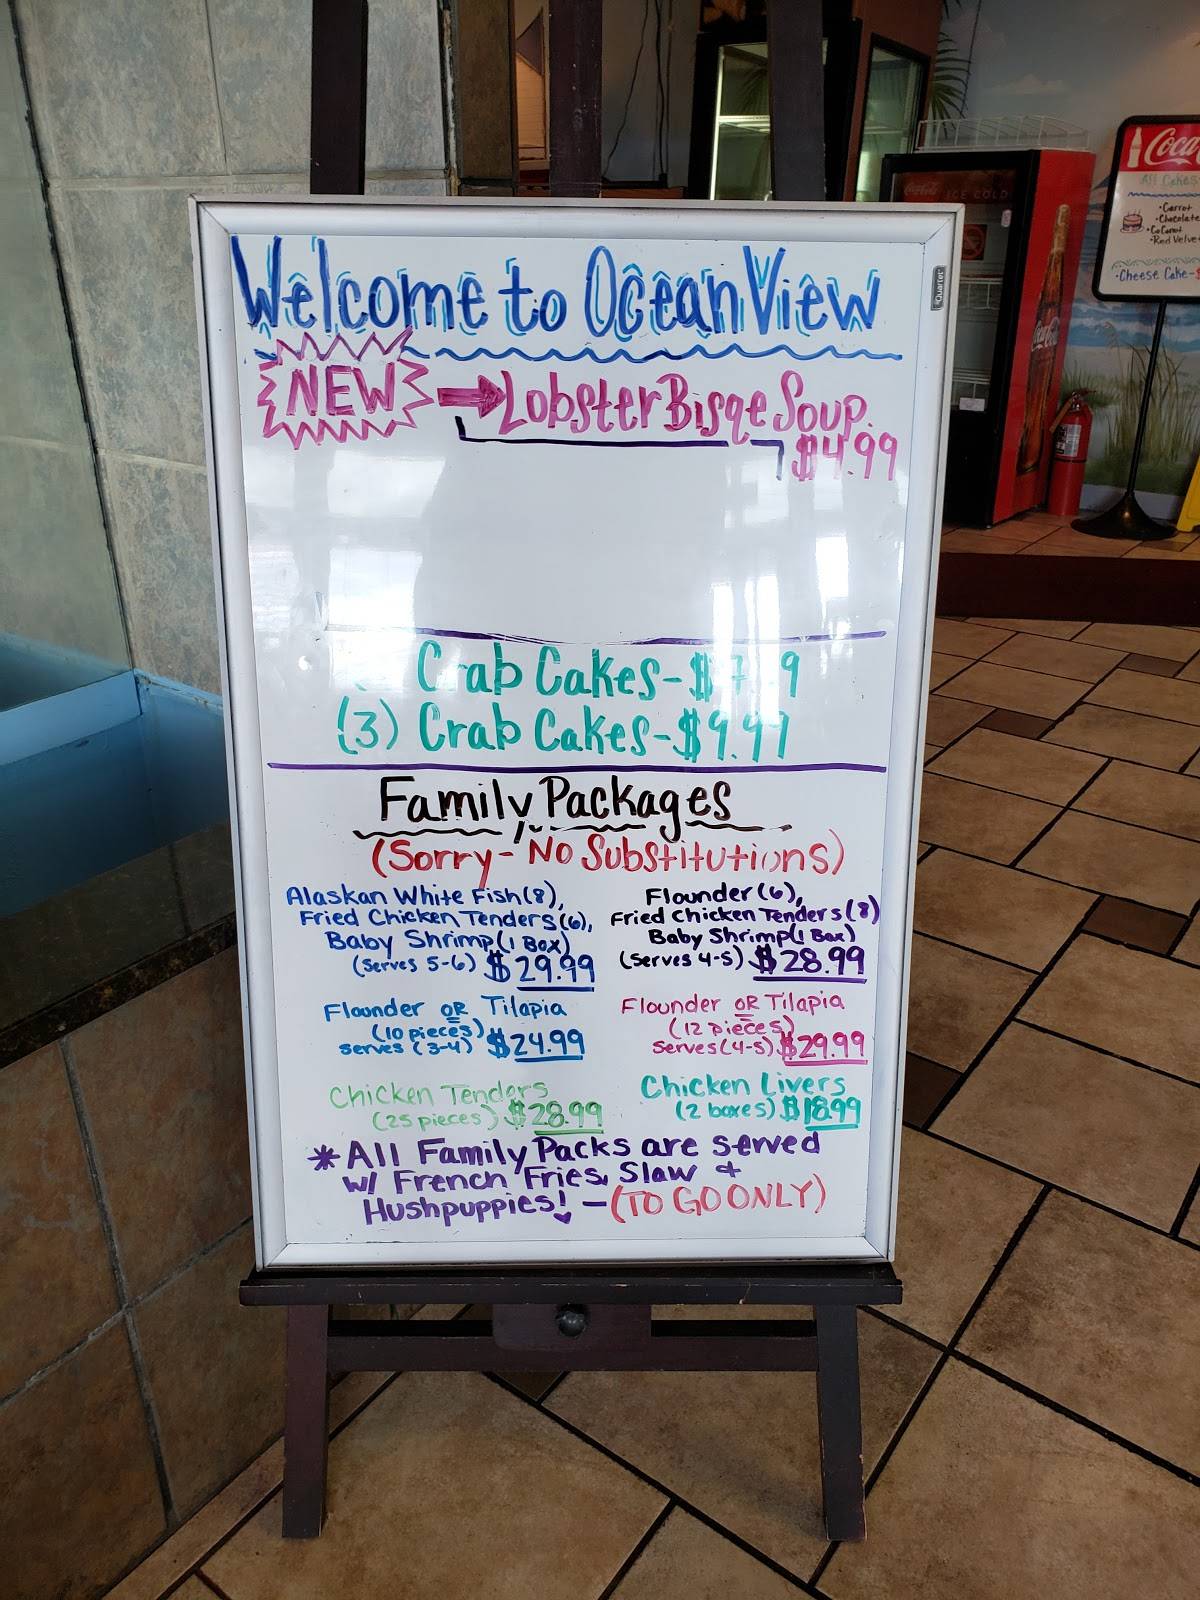 Welcome to Ocean View
NEW → Lobster Bisqe Soup
$4.99
Crab Cakes-$
(3) Crab Cakes-$9.99
Family Packages
(Sorry-No Substitutions)
Alaskan White Fish(8),
Fried Chicken Tenders(6),
Baby Shrimp(1 Box)
(serves 5-6) $29.99
Flounder(6),
Fried chicken Tenders(8)
Baby Shrimp(1 Box)
(serves 4-5) $28.99
Flounder OR Tilapia
(10 pieces)
serves (3-4) $24.99
Flounder OR Tilapia
(12 pieces)
serves(4-5) $29.99
Chicken Tenders
(25 pieces) $28.99
Chicken Livers
(2 boxes) $18.99
*All Family Packs are served
w/ French Fries, Slaw &
Hushpuppies! -(TO GO ONLY)
Quartet
Coca-Cola
ICE COLD
Coca-Cola
Coca
All Cakes
•Carrot
•Chocolate
•CoConut
•Red Velve
•Cheese Cake-$